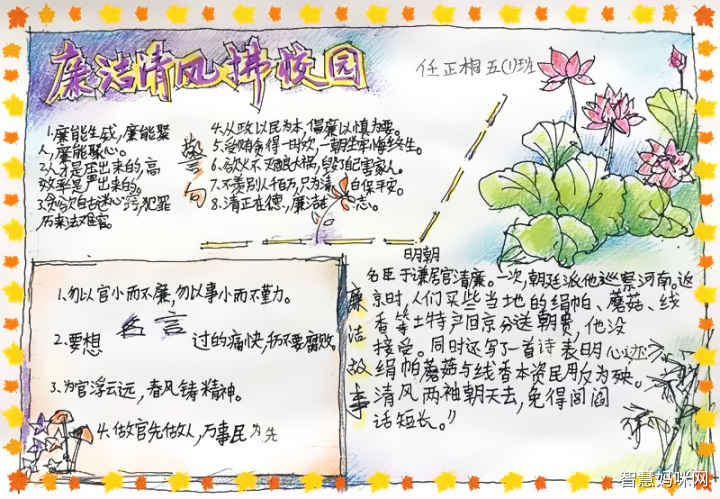 廉洁清风拂校园
任正相 五(1)班
警句
1.廉能生威,廉能聚
人,廉能聚心。
2.人才是压出来的,高
效率是严出来的。
历来法难容。
4.从政以民为本,倡廉以慎为要。
5.受贿贪得一时欢,一朝坐牢悔终生。
7.不羡别人千百万,只为清白保平安。
8.清正在德,廉洁在志。
名言
1.勿以官小而不廉,勿以事小而不勤力。
2.要想过的痛快,仍不要腐败。
3.为官浮云远,春风铸精神。
4.做官先做人,万事民为先
廉洁故事
明朝
名臣于谦居官清廉。一次,朝廷派他巡察河南。返
京时,人们买些当地的绢帕、蘑菇、线
香等土特产回京分送朝贵,他没
接受。同时还写了一首诗表明心迹:
绢帕蘑菇与线香本资民用反为殃。
清风两袖朝天去,免得闾阎
话短长。”
智慧妈咪网